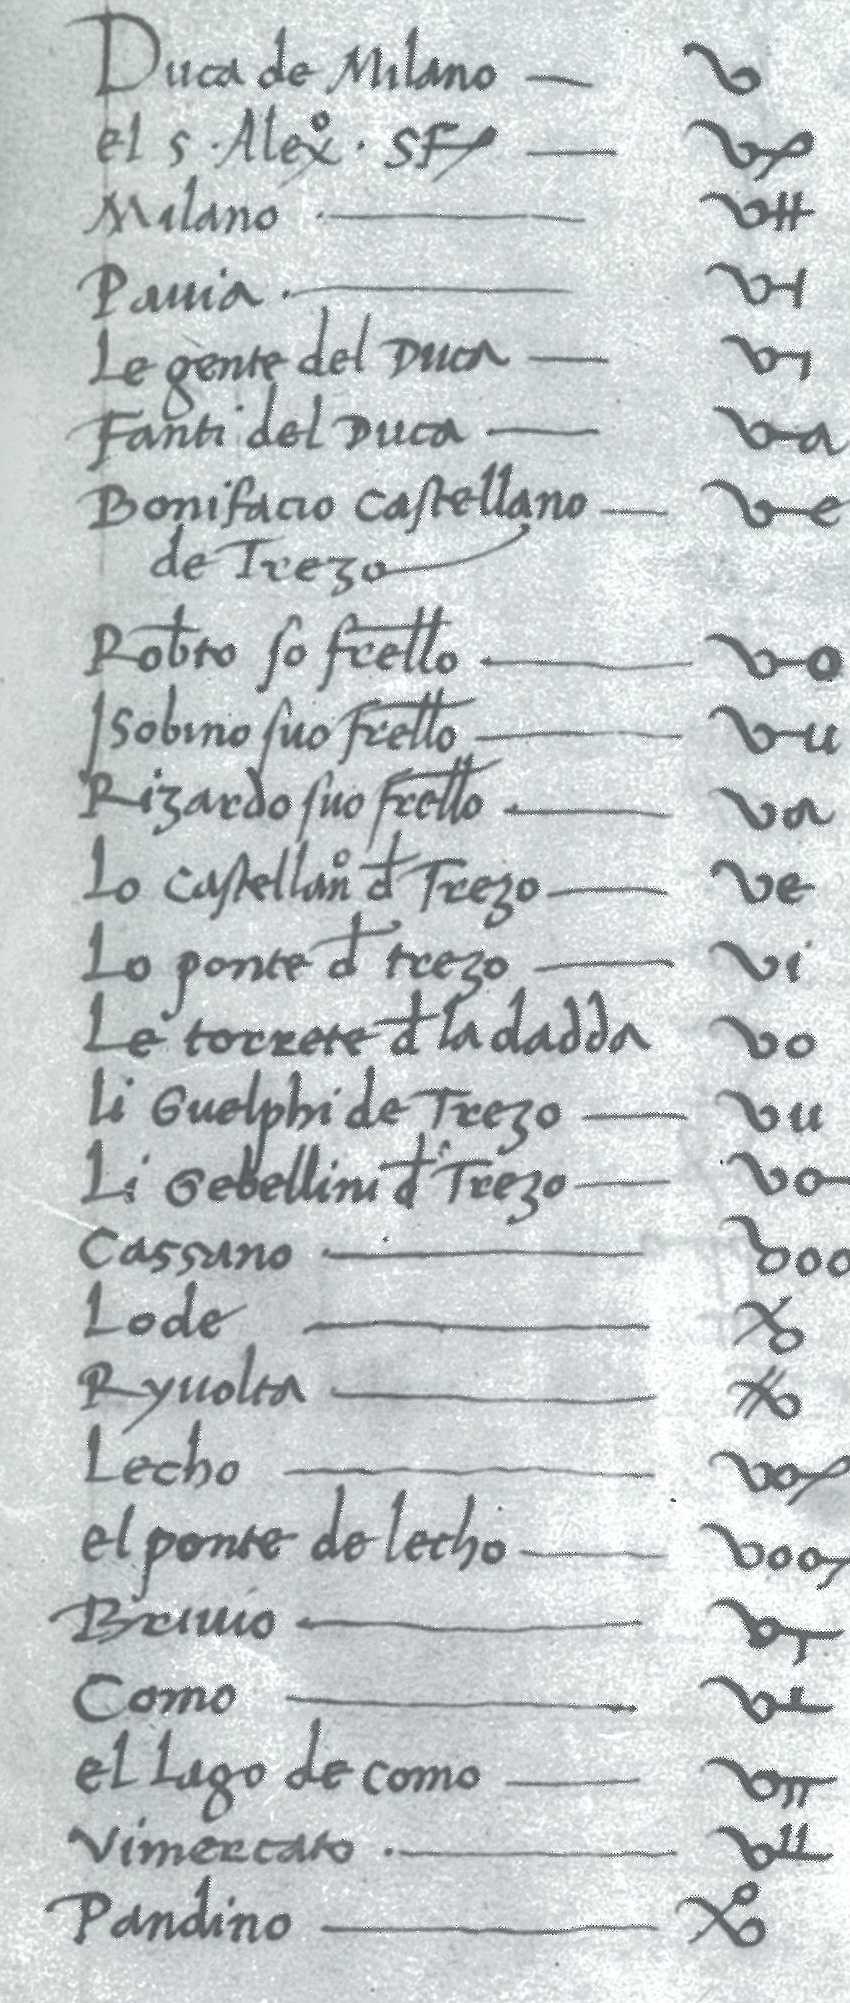 Duca de Milano
el s. Alexo. SF
Milano
Pauia
Le gente del Duca
Fanti del Duca
Bonifacio Castellano
de Trezo
Robto so frello
Isobino suo frello
Rizardo suo frello
Lo Castellano d Trezo
Lo ponte d trezo
Le torrete d la dadda
Li Guelphi de Trezo
Li Gebellini d Trezo
Cassano
Lode
Ryuolta
Lecho
el ponte de lecho
Briuio
Como
el Lago de como
Vimercato
Pandino